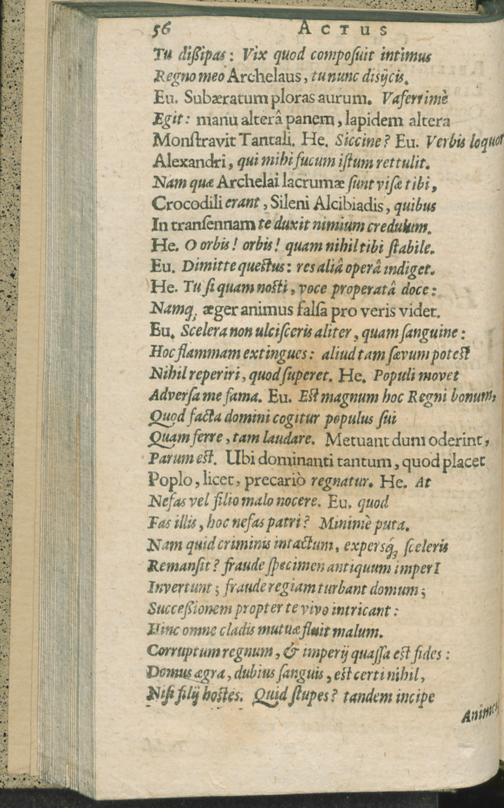 56 ACTUS
Tu dißipas: Vix quod composuit intimus
Regno meo Archelaus, tu nunc disijcis.
Eu. Subæratum ploras aurum. Vaferrimè
Egit: manu alterâ panem, lapidem altera
Monstravit Tantali. He. Siccine? Eu. Verbis loquor
Alexandri, qui mihi fucum istum rettulit.
Nam quæ Archelai lacrumæ sunt visæ tibi,
Crocodili erant, Sileni Alcibiadis, quibus
In transennam te duxit nimium credulum.
He. O orbis! orbis! quam nihil tibi stabile.
Eu. Dimitte questus: res aliâ operâ indiget.
He. Tu si quam nosti, voce properatâ doce:
Namq; æger animus falsa pro veris videt.
Eu. Scelera non ulcisceris aliter, quam sanguine:
Hoc flammam extingues: aliud tam sævum potest
Nihil reperiri, quod superet. He. Populi movet
Adversa me fama. Eu. Est magnum hoc Regni bonum,
Quod facta domini cogitur populus sui
Quam ferre, tam laudare. Metuant dum oderint,
Parum est. Ubi dominanti tantum, quod placet
Poplo, licet, precariò regnatur. He. At
Nefas vel filio malo nocere. Eu. quod
Fas illis, hoc nefas patri? Minimè puta.
Nam quid criminis intactum, expersq; sceleris
Remansit? fraude specimen antiquum imperI
Invertunt; fraude regiam turbant domum;
Succeßionem propter te vivo intricant:
Hinc omne cladis mutuæ fluit malum.
Corruptum regnum, & imperij quassa est fides:
Domus ægra, dubius sanguis, est certi nihil,
Nisi filij hostes. Quid stupes? tandem incipe